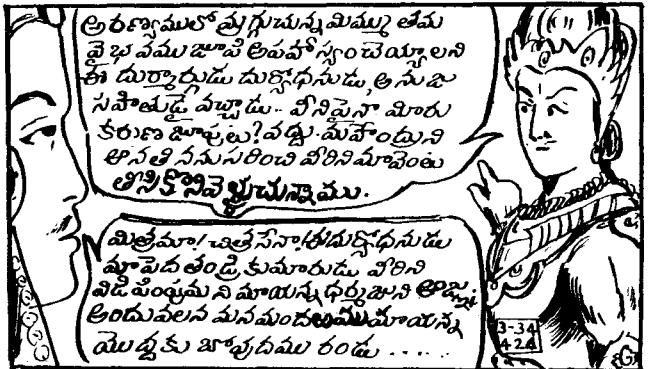 అరణ్యములో మ్రగ్గుచున్న మిమ్ము తమ
వైభవము జూపి అపహాస్యం చెయ్యాలని
ఈ దుర్మార్గుడు దుర్యోధనుడు, అనుజ
సహితుడై వచ్చాడు.. వీనిపైనా మీరు
కరుణ జూపులు? వద్దు. మహేంద్రుని
ఆనతి ననుసరించి వీరిని మావెంట
తీసికొనివెళ్ళుచున్నాము.
మిత్రమా! చిత్రసేనా! ఈ దుర్యోధనుడు
మా పెద తండ్రి కుమారుడు వీరిని
విడిపింపుమని మాయన్న ధర్మజుని ఆజ్ఞ
అందువలన మనమందఱము మాయన్న
యొద్దకు బోవుదము రండు .....
3-34
424